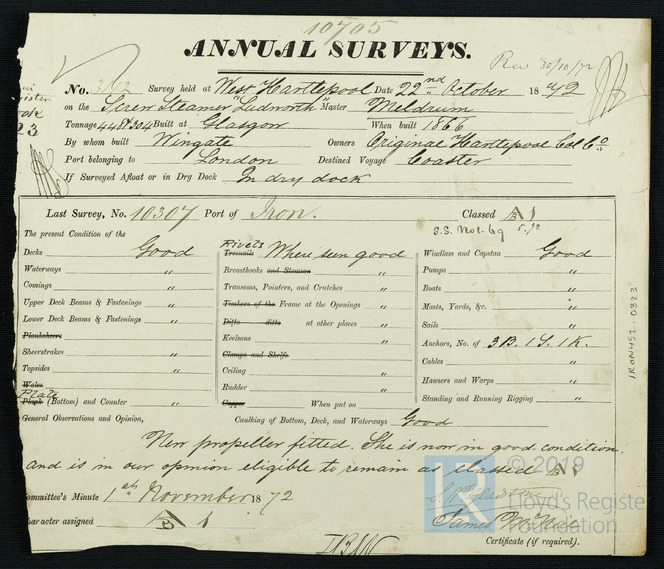 10705
ANNUAL SURVEYS.
Rec 30/10/72
No. Survey held at West Hartlepool Date 22nd October 1872
on the Screw Steamer "Ludworth" Master Meldrum
Tonnage 448 & 304 Built at Glasgow When built 1866
By whom built Wingate Owners Original Hartlepool Col Co
Port belonging to London Destined Voyage Coaster
If Surveyed Afloat or in Dry Dock In dry dock
Last Survey, No. 10307 Port of Iron. Classed A 1
S.S. No1-69 5.72
The present Condition of the
Decks Good Rivets Treenails Where seen good Windlass and Capstan Good
Waterways " Breasthooks and Stemson " Pumps "
Comings " Transoms, Pointers, and Crutches " Boats "
Upper Deck Beams & Fastenings " Timbers of the Frame at the Openings " Masts, Yards, &c. "
Lower Deck Beams & Fastenings " Ditto ditto at other places " Sails "
Planksheers Keelsons " Anchors, No. of 3B. 1S. 1K.
Sheerstrakes " Clamps and Shelfs Cables "
Topsides " Ceiling " Hawsers and Warps "
Wales Rudder " Standing and Running Rigging "
Plate Plank (Bottom) and Counter " Copper When put on
General Observations and Opinion, Caulking of Bottom, Deck, and Waterways Good
New propeller fitted. She is now in good condition.
and is in our opinion eligible to remain as classed A 1
Committee's Minute 1st November 1872
Character assigned A 1
James
Certificate (if required).
IRON452-0323
© 2019
Lloyd's Register
Foundation